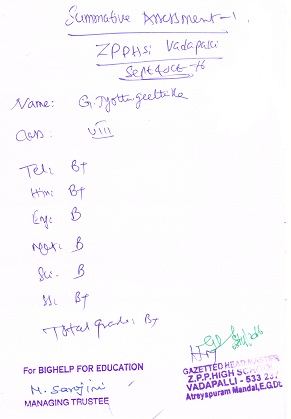 Summative Assessment-1
ZPPHSc Vadapalli
Sept & Oct -16
Name: G. Jyothigeethika
Class: VIII
Tel: B+
Hin: B+
Eng: B
Mat: B
Sci: B
SS: B+
Total grade: B+
For BIGHELP FOR EDUCATION
M. Sanjini
MANAGING TRUSTEE
HM
GAZETTED HEADMASTER
Z.P.P.HIGH SCHOOL
VADAPALLI - 533 237
Atreyapuram Mandal, E.G.Dt.